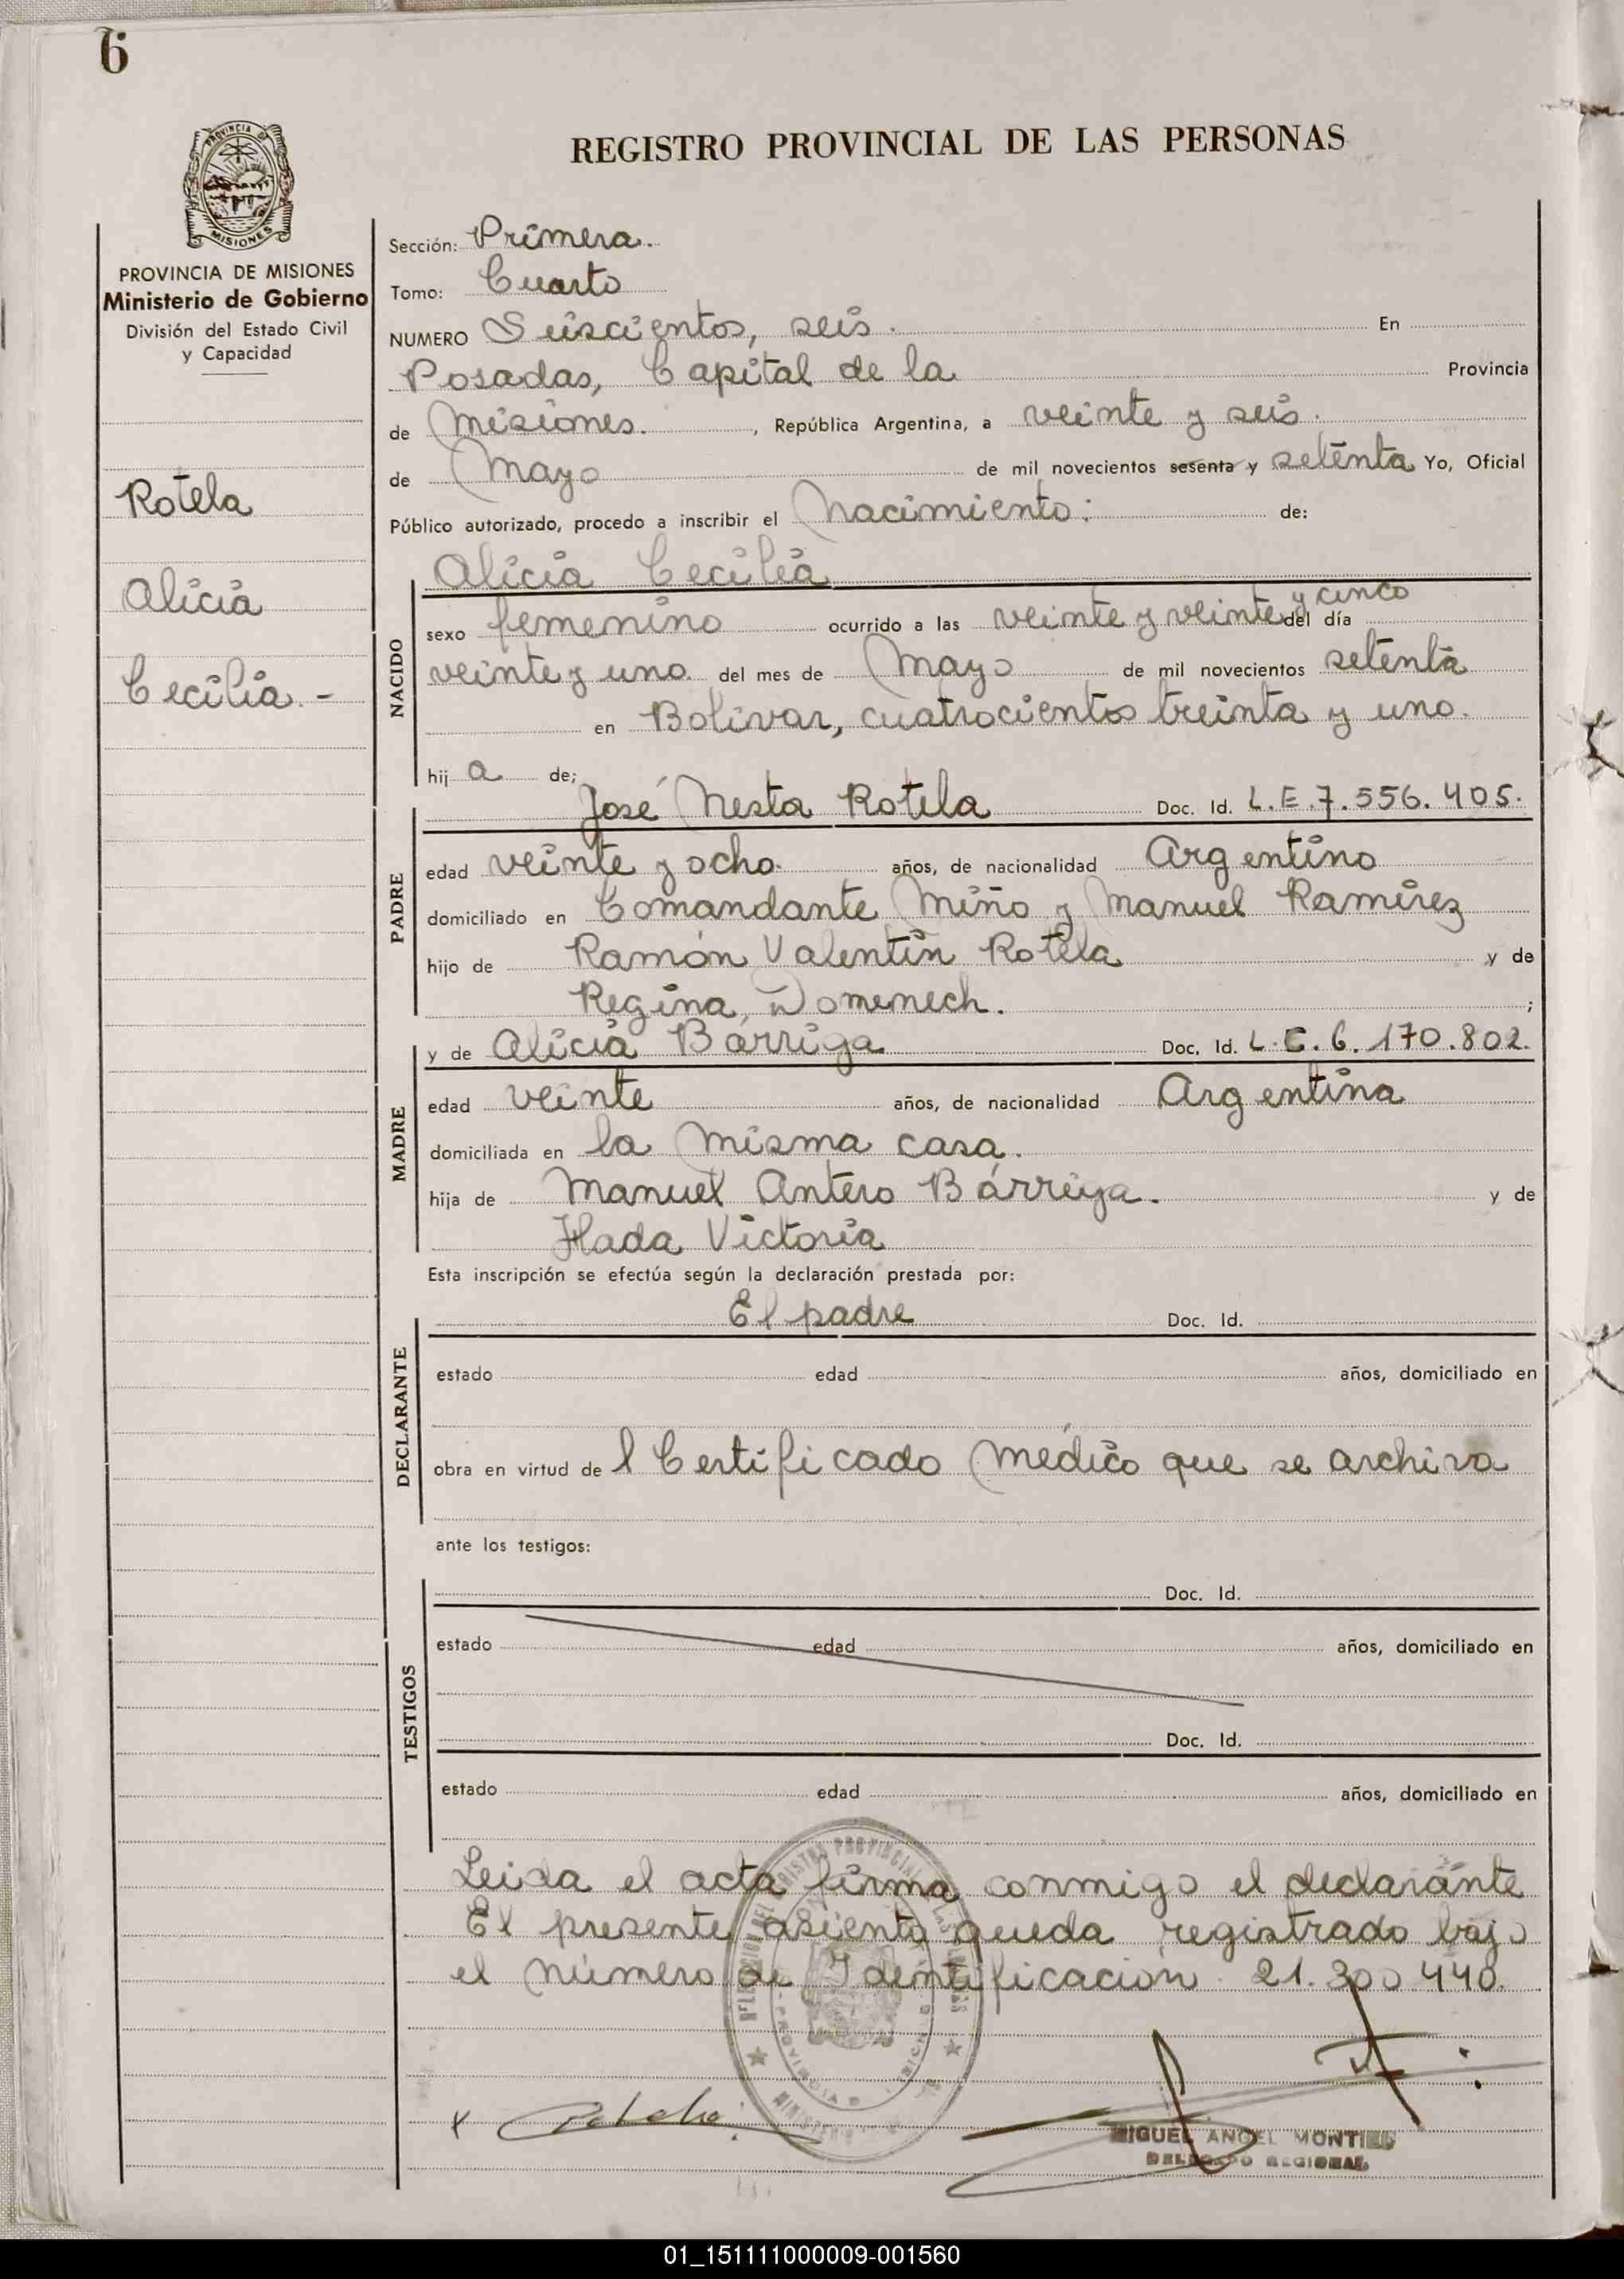 6
REGISTRO PROVINCIAL DE LAS PERSONAS
PROVINCIA DE
MISIONES
PROVINCIA DE MISIONES
Ministerio de Gobierno
División del Estado Civil
y Capacidad
Rotela
Alicia
Cecilia. -
Sección: Primera.
Tomo: Cuarto
NUMERO Seiscientos, seis. En
Posadas, Capital de la Provincia
de Misiones. , República Argentina, a veinte y seis.
de Mayo de mil novecientos sesenta y setenta Yo, Oficial
Público autorizado, procedo a inscribir el Nacimiento: de:
Alicia Cecilia
NACIDO
sexo femenino ocurrido a las veinte y veinte y cinco del día
veinte y uno. del mes de Mayo de mil novecientos setenta
en Bolívar, cuatrocientos treinta y uno.
hij a de;
PADRE
José Nesta Rotela Doc. Id. L.E. 7.556.405.
edad veinte y ocho. años, de nacionalidad Argentino
domiciliado en Comandante Miño y Manuel Ramírez
hijo de Ramón Valentín Rotela y de
Regina, Domenech. ;
MADRE
y de Alicia Bárriga Doc. Id. L.C. 6.170.802.
edad veinte años, de nacionalidad Argentina
domiciliada en la misma casa.
hija de Manuel Antero Bárriga. y de
Hada Victoria
Esta inscripción se efectúa según la declaración prestada por:
DECLARANTE
El padre Doc. Id.
estado edad años, domiciliado en
obra en virtud de l Certificado médico que se archiva
ante los testigos:
TESTIGOS
Doc. Id.
estado edad años, domiciliado en
Doc. Id.
estado edad años, domiciliado en
Leida el acta firma conmigo el declarante
El presente asiento queda registrado bajo
el número de Identificación 21.300.440.
MIGUEL ANGEL MONTIEL
DELEGADO REGIONAL
01_151111000009-001560